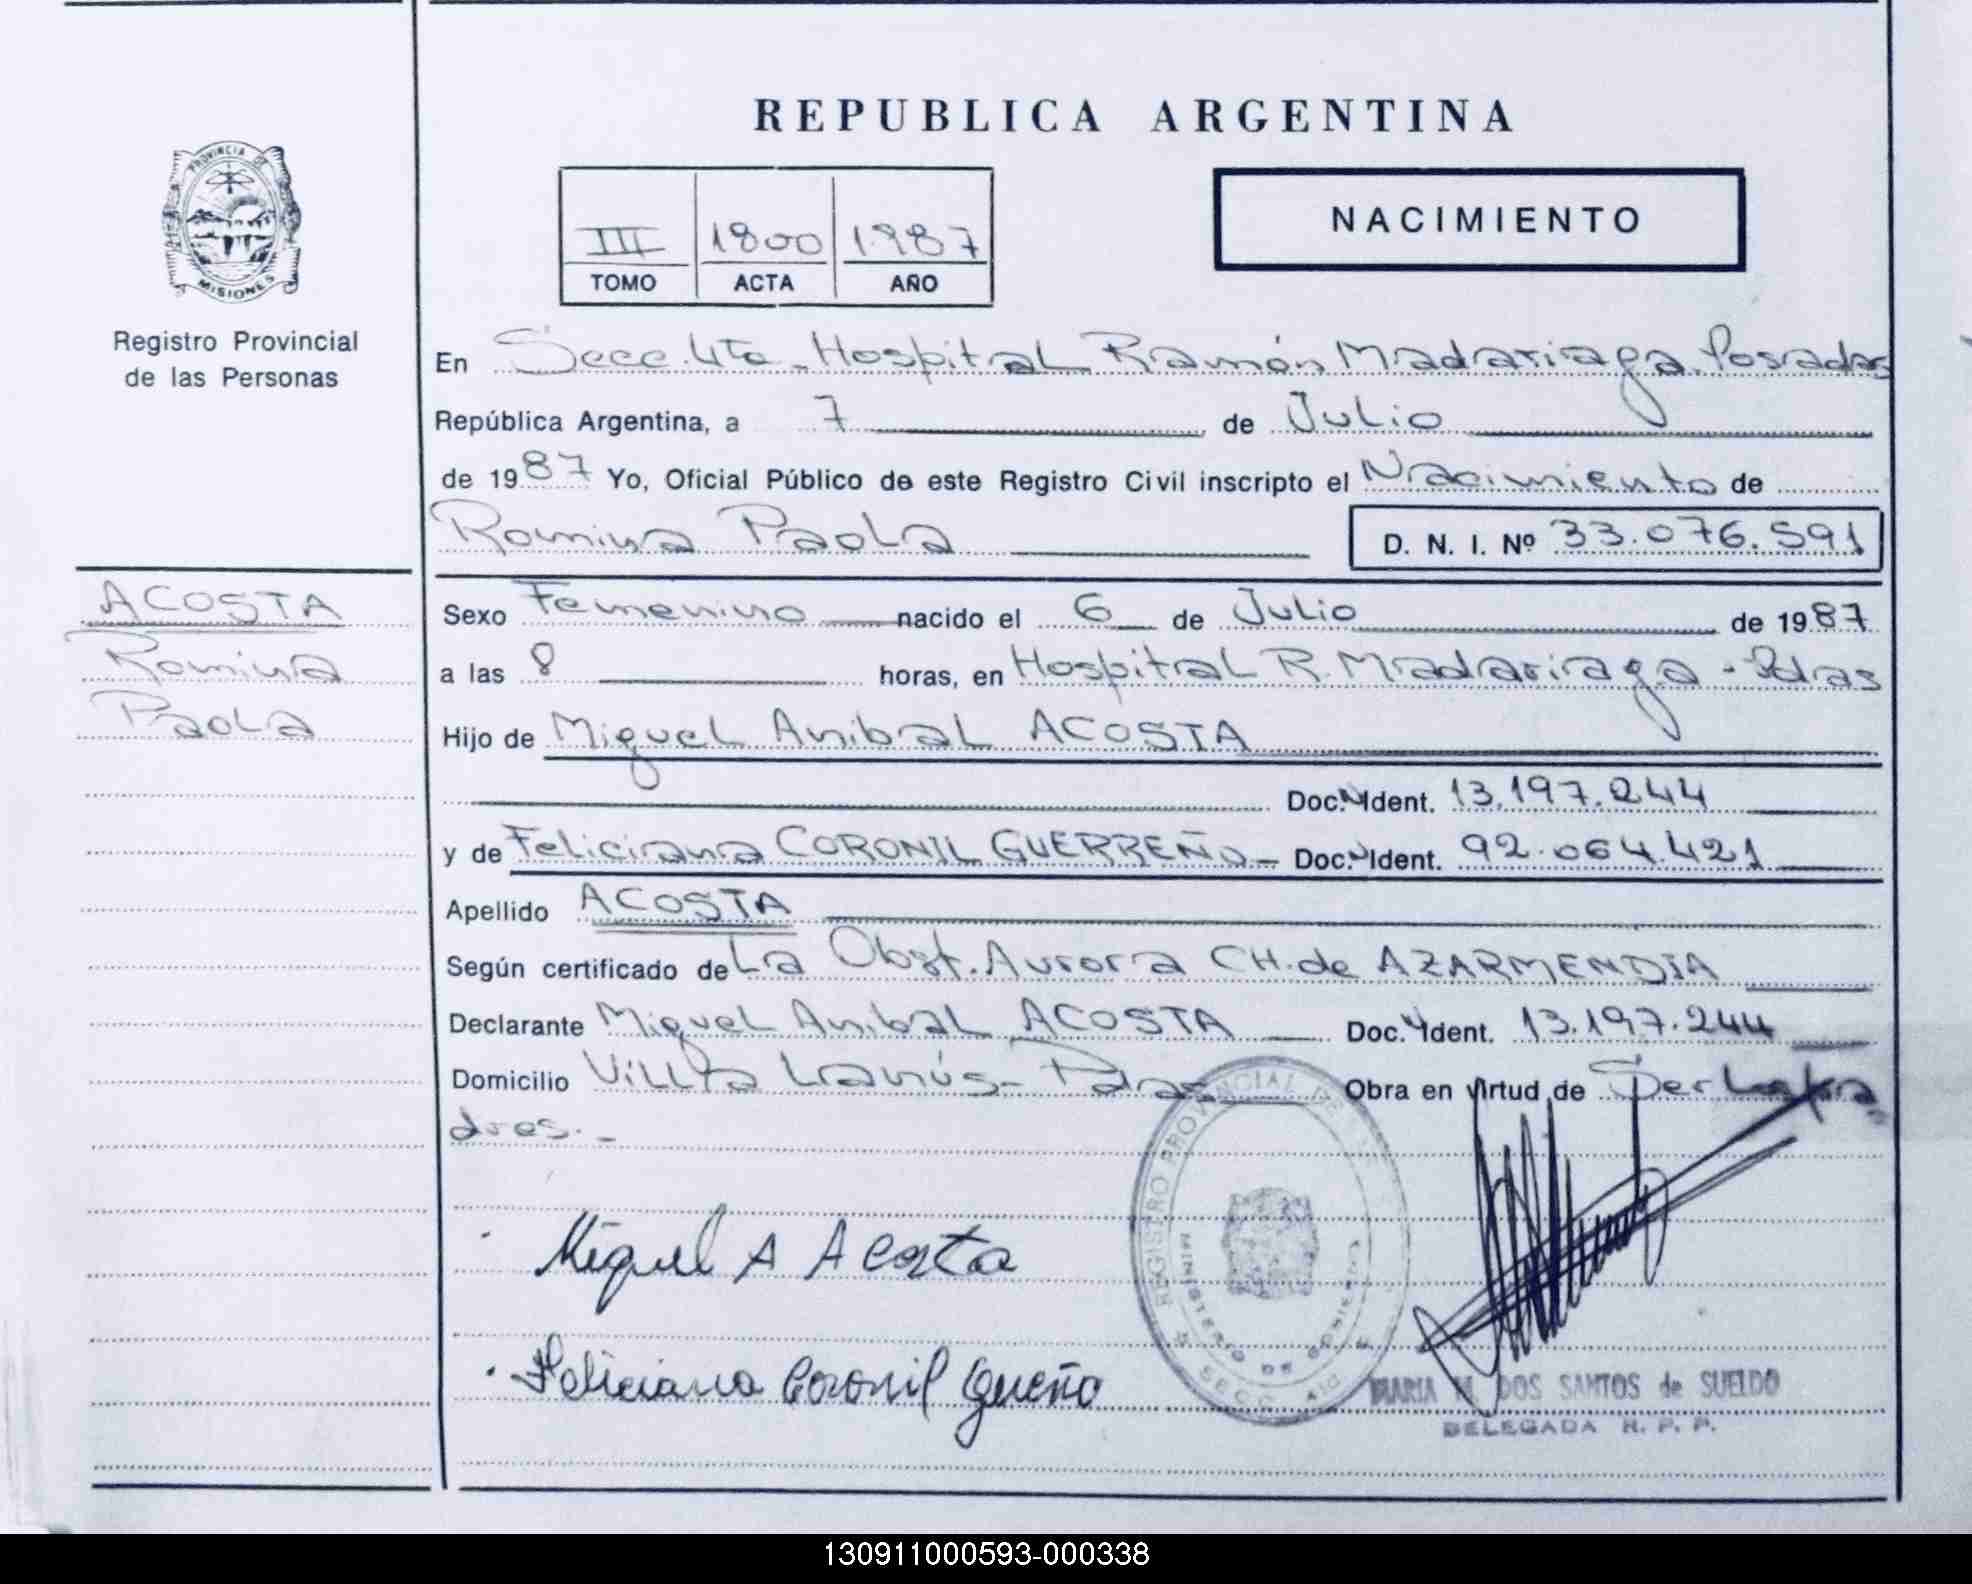 REPUBLICA ARGENTINA
PROVINCIA DE
MISIONES
Registro Provincial
de las Personas
III 1800 1987
TOMO ACTA AÑO
NACIMIENTO
En Secc. 4ta. Hospital Ramón Madariaga. Posadas
República Argentina, a 7 de Julio
de 1987 Yo, Oficial Público de este Registro Civil inscripto el Nacimiento de
Romina Paola D. N. I. Nº 33.076.591
ACOSTA
Romina
Paola
Sexo Femenino nacido el 6 de Julio de 1987
a las 8 horas, en Hospital R. Madariaga - Pdas
Hijo de Miguel Anibal ACOSTA
Doc. Ident. 13.197.244
y de Feliciana CORONIL GUERREÑO - Doc. Ident. 92.064.421
Apellido ACOSTA
Según certificado de La Obst. Aurora CH. de AZARMENDIA
Declarante Miguel Anibal ACOSTA Doc. Ident. 13.197.244
Domicilio Villa Lanús - Pdas Obra en virtud de Ser los pa
dres. -
Miguel A Acosta
Feliciana Coronil Gueño
REGISTRO PROVINCIAL DE
MINISTERIO DE GOBIERNO
SECC. 4ta
MARIA M. DOS SANTOS de SUELDO
DELEGADA R. P. P.
130911000593-000338